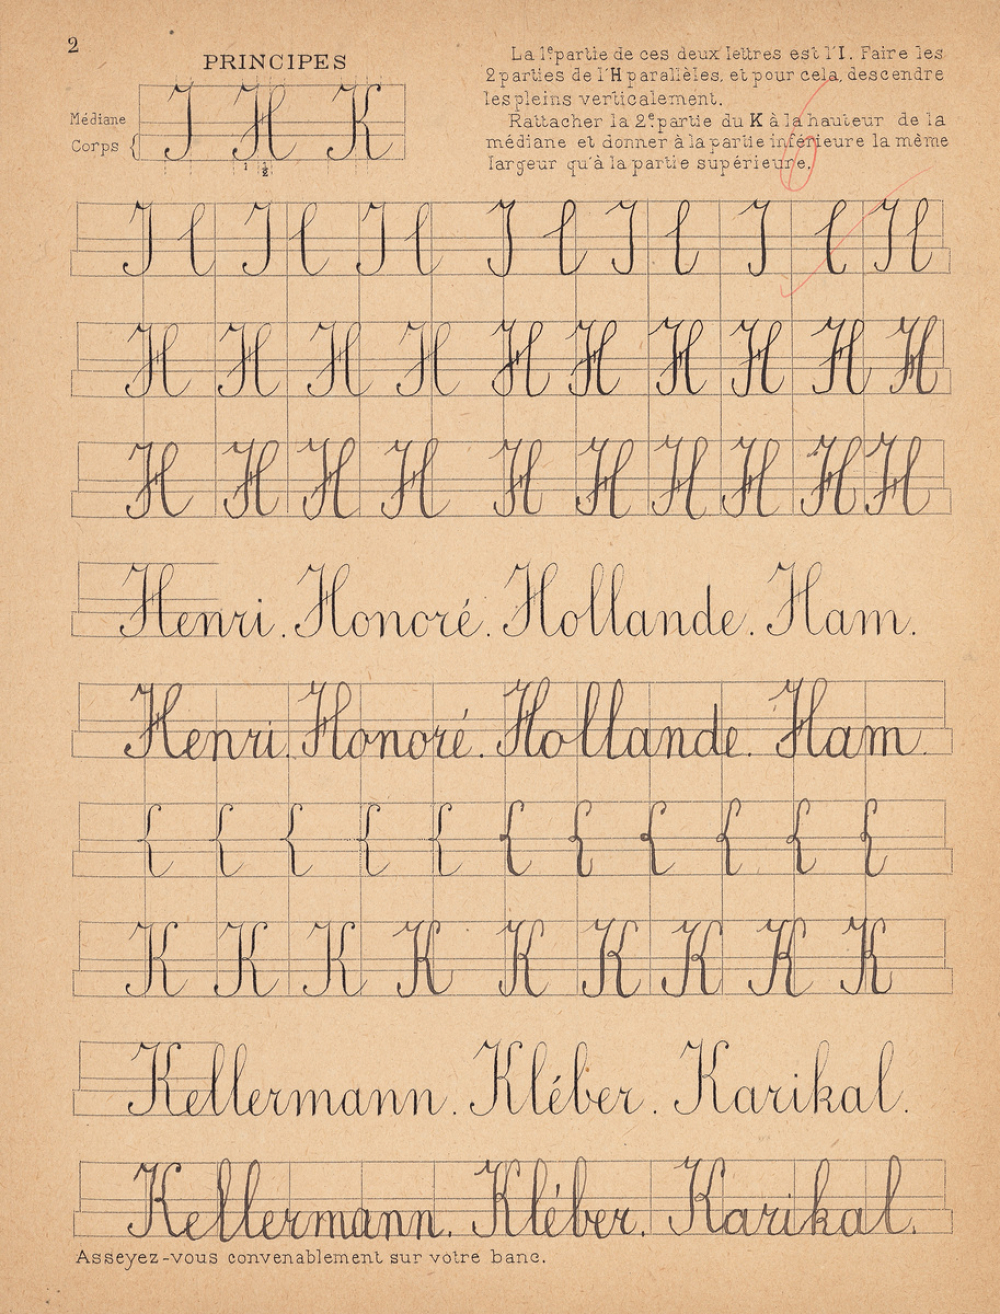 2
PRINCIPES
Médiane
Corps
I H K
1 2
La 1e partie de ces deux lettres est l'I. Faire les
2 parties de l'H parallèles, et pour cela, descendre
les pleins verticalement.
Rattacher la 2e partie du K à la hauteur de la
médiane et donner à la partie inférieure la même
largeur qu'à la partie supérieure.
I l I l I l I l I l I l H
H H H H H H H H H H
H H H H H H H H H H
Henri. Honoré. Hollande. Ham.
Henri. Honoré. Hollande. Ham.
K K K K K K K K K
Kellermann. Kléber. Karikal.
Kellermann. Kléber. Karikal.
Asseyez-vous convenablement sur votre banc.